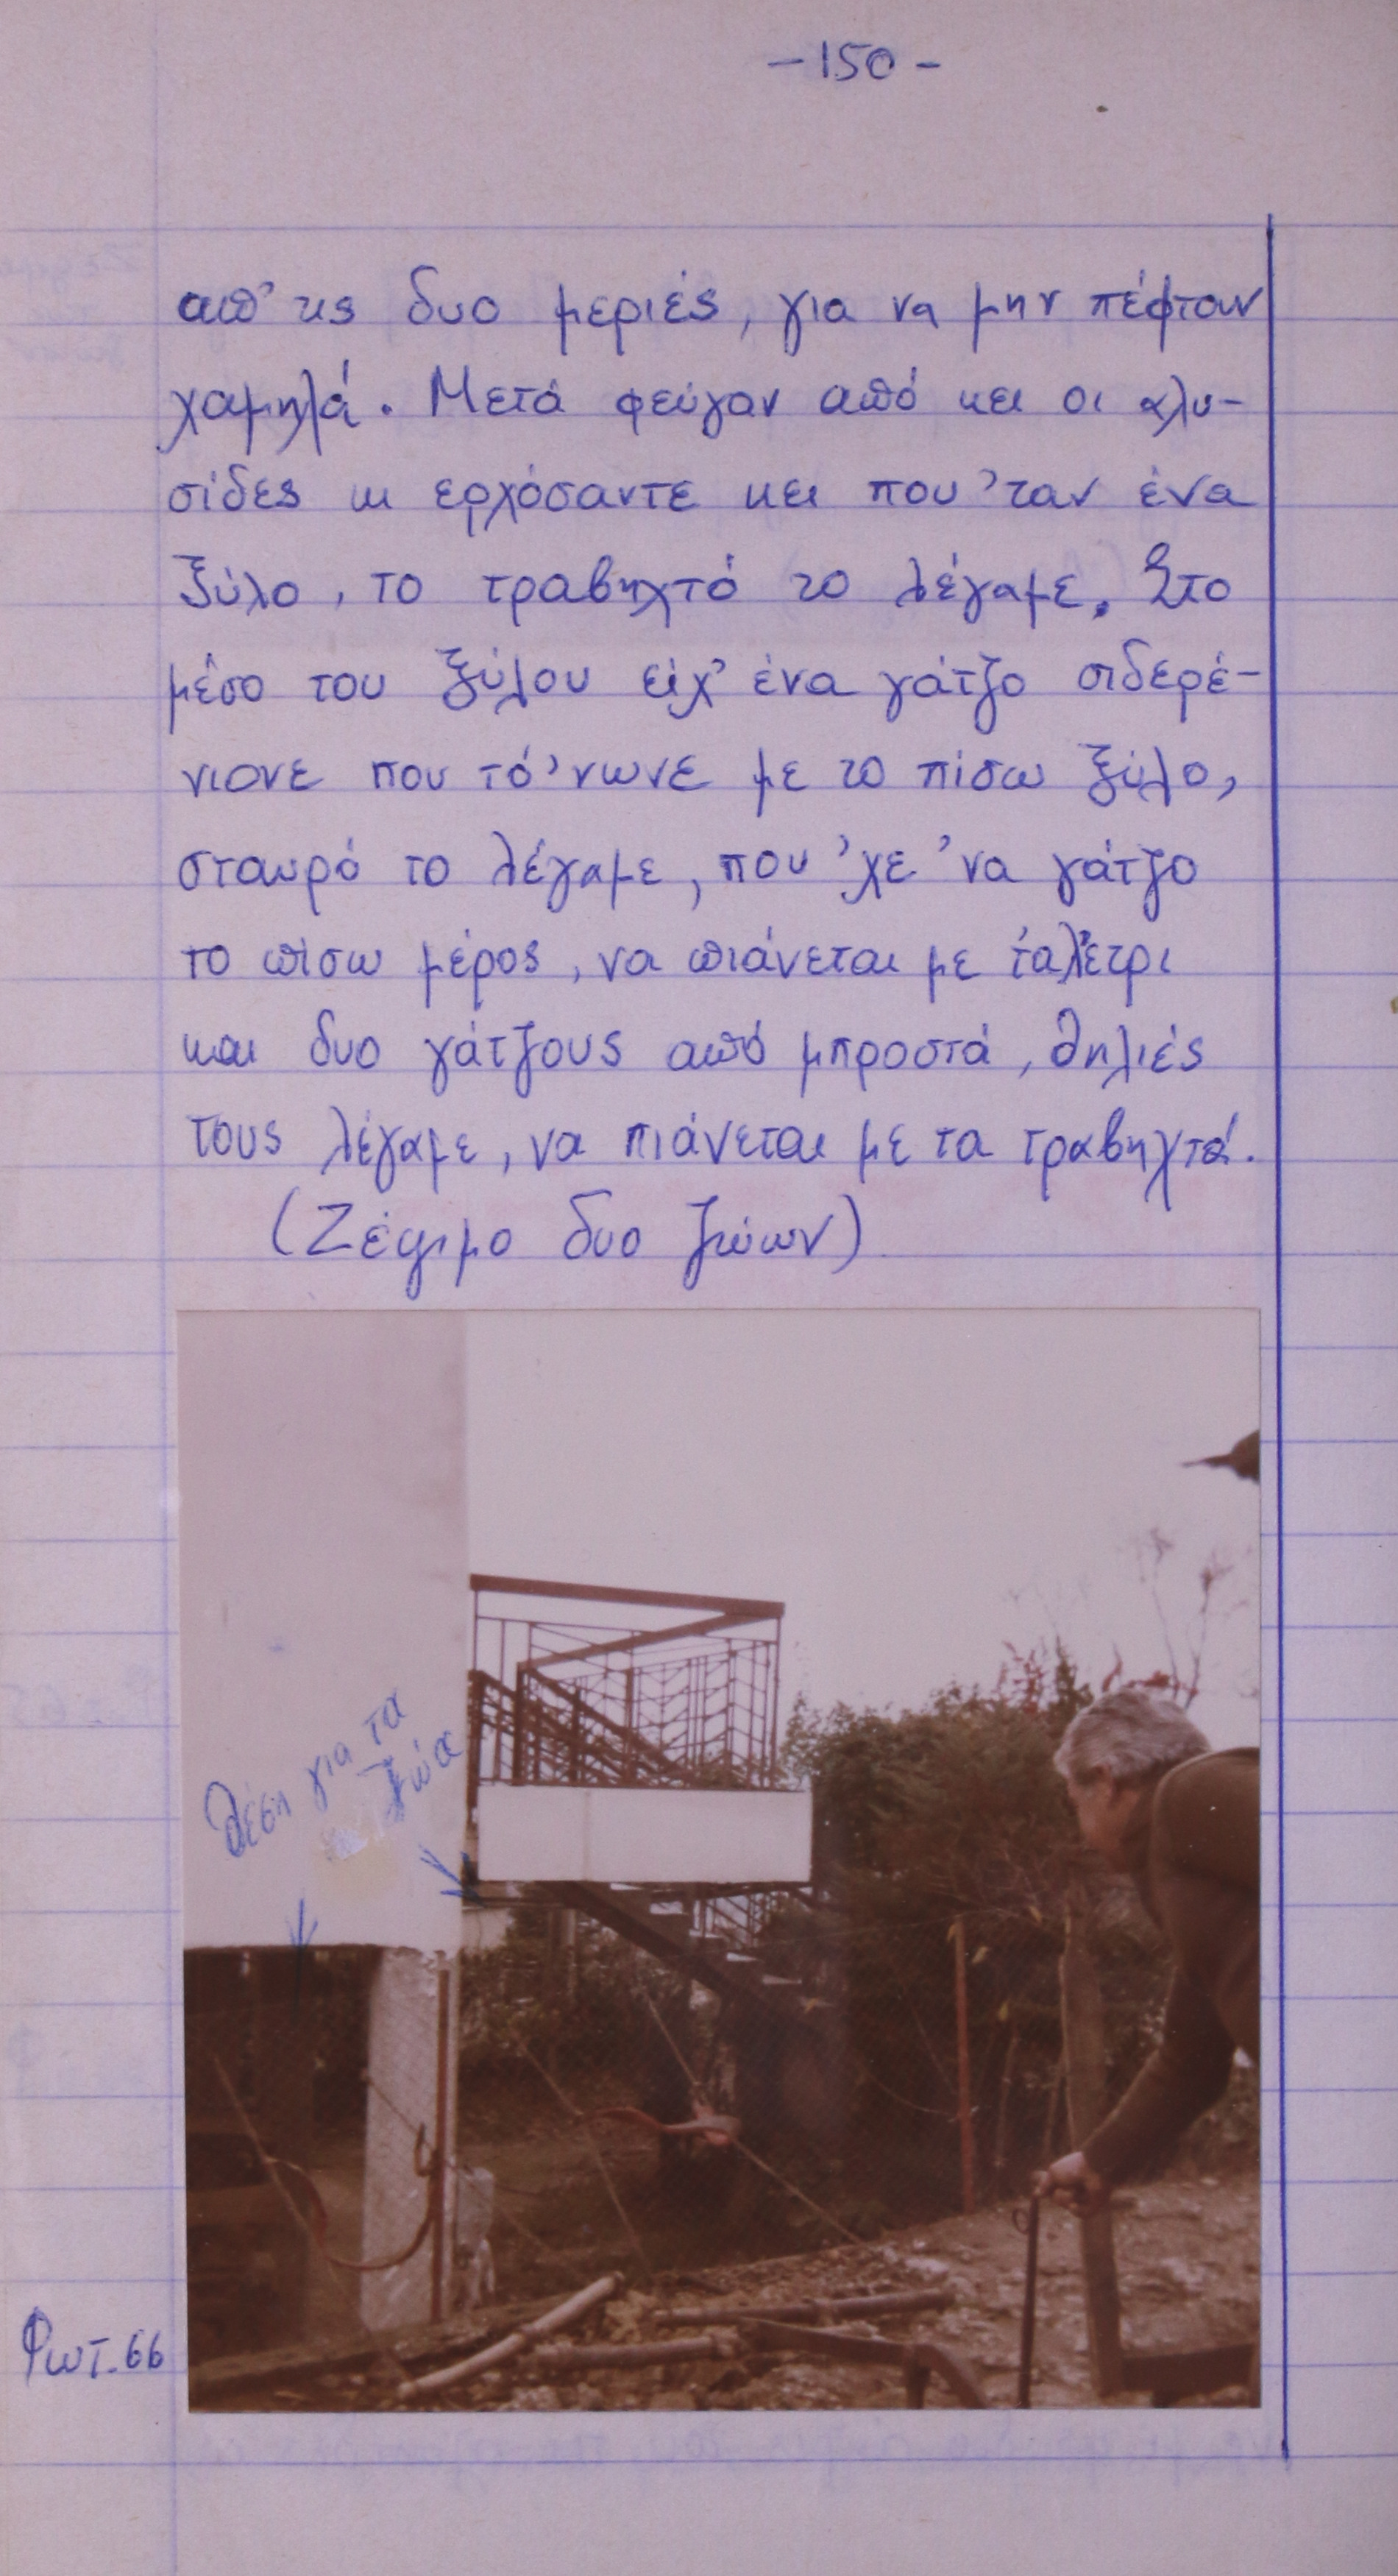 -150-
απ' τις δυο μεριές, για να μην πέφτουν
χαμηλά. Μετά φεύγαν από κει οι αλυ-
σίδες κι ερχόσαντε κει που 'ταν ένα
ξύλο, το τραβηχτό το λέγαμε. Στο
μέσο του ξύλου είχ' ένα γάτζο σιδερέ-
νιονε που τό 'νωνε με το πίσω ξύλο,
σταυρό το λέγαμε, που 'χε 'να γάτζο
το πίσω μέρος, να πιάνεται με τ' αλέτρι
και δυο γάτζους από μπροστά, θηλιές
τους λέγαμε, να πιάνεται με τα τραβηχτά.
(Ζέψιμο δυο ζώων)
θέση για τα
ζώα
Φωτ. 66